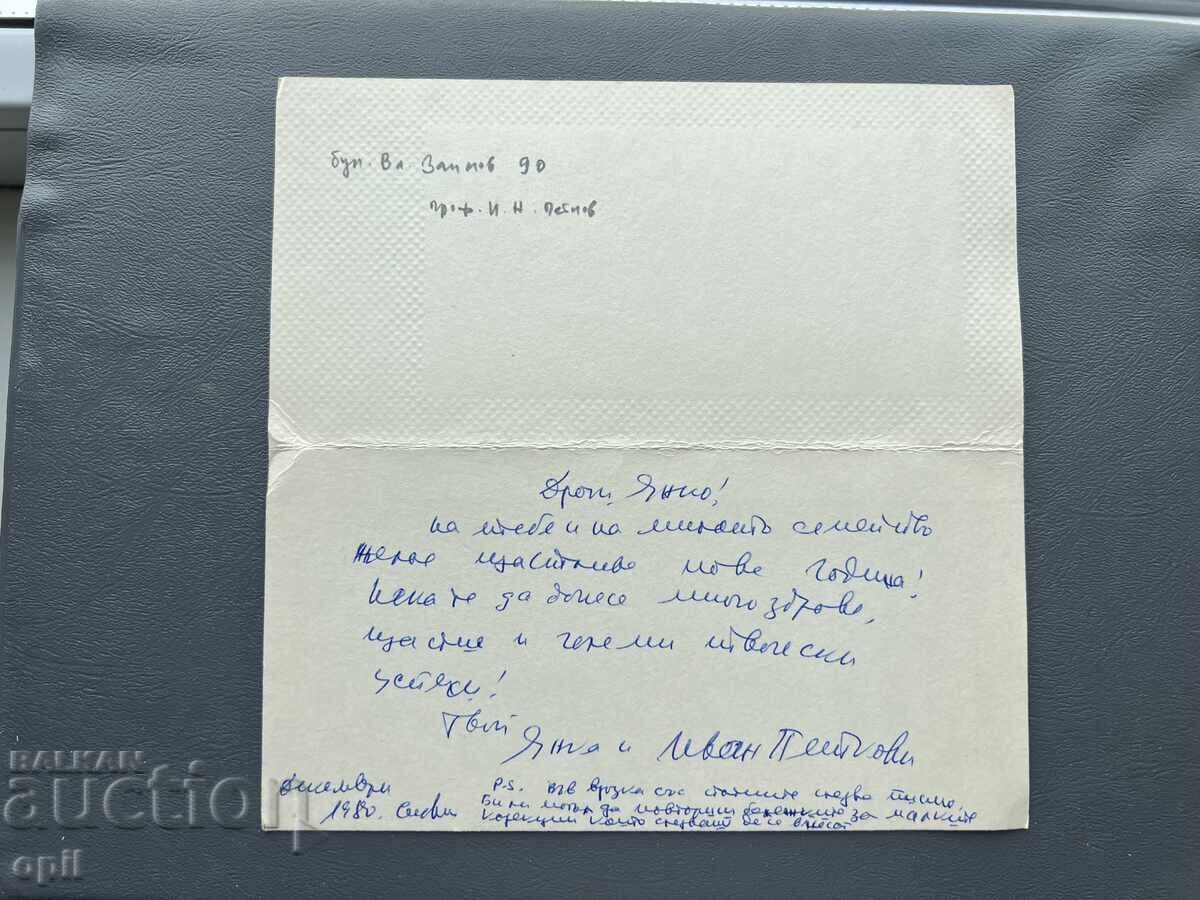 бул. Вл. Заимов 90
проф. И. Н. Петков
Драги Янко!
на тебе и на милото семейство
желая щастлива нова година!
Нека те да донесе много здраве,
щастие и големи творчески
успехи!
Твои
Янка и Иван Петкови
декември
1980. София
P.S. във връзка със статиите следва писмо,
Би ли могъл да повториш бележките за малките
корекции които следват да се внесат
BALKAN
auction
opil